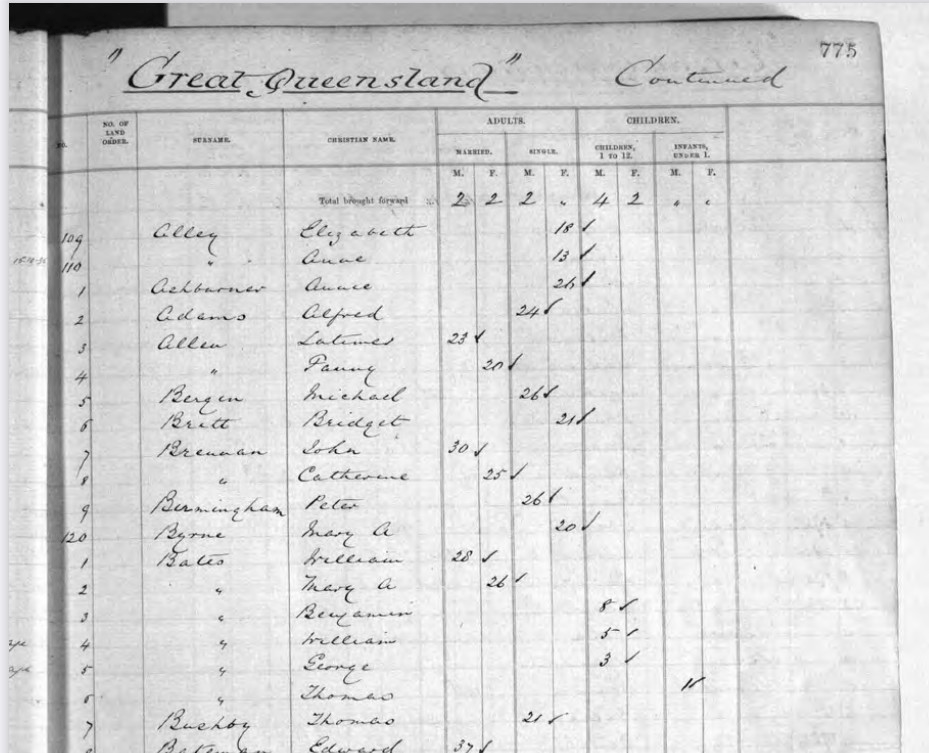 775
"Great Queensland" Continued
NO. NO. OF LAND ORDER. SURNAME. CHRISTIAN NAME. ADULTS. CHILDREN.
MARRIED. SINGLE. CHILDREN, 1 TO 12. INFANTS, UNDER 1.
M. F. M. F. M. F. M. F.
Total brought forward 2 2 2 " 4 2 " "
109 Alley Elizabeth 18
110 " Anne 13
1 Ashburner Annie 26
2 Adams Alfred 24
3 Allen Latimer 23
4 " Fanny 20
5 Bergin Michael 26
6 Britt Bridget 21
7 Brennan John 30
8 " Catherine 25
9 Birmingham Peter 26
120 Byrne Mary A 20
1 Bates William 28
2 " Mary A 26
3 " Benjamin 8
4 " William 5
5 " George 3
6 " Thomas 1
7 Bushby Thomas 21
8 Bateman Edward 37